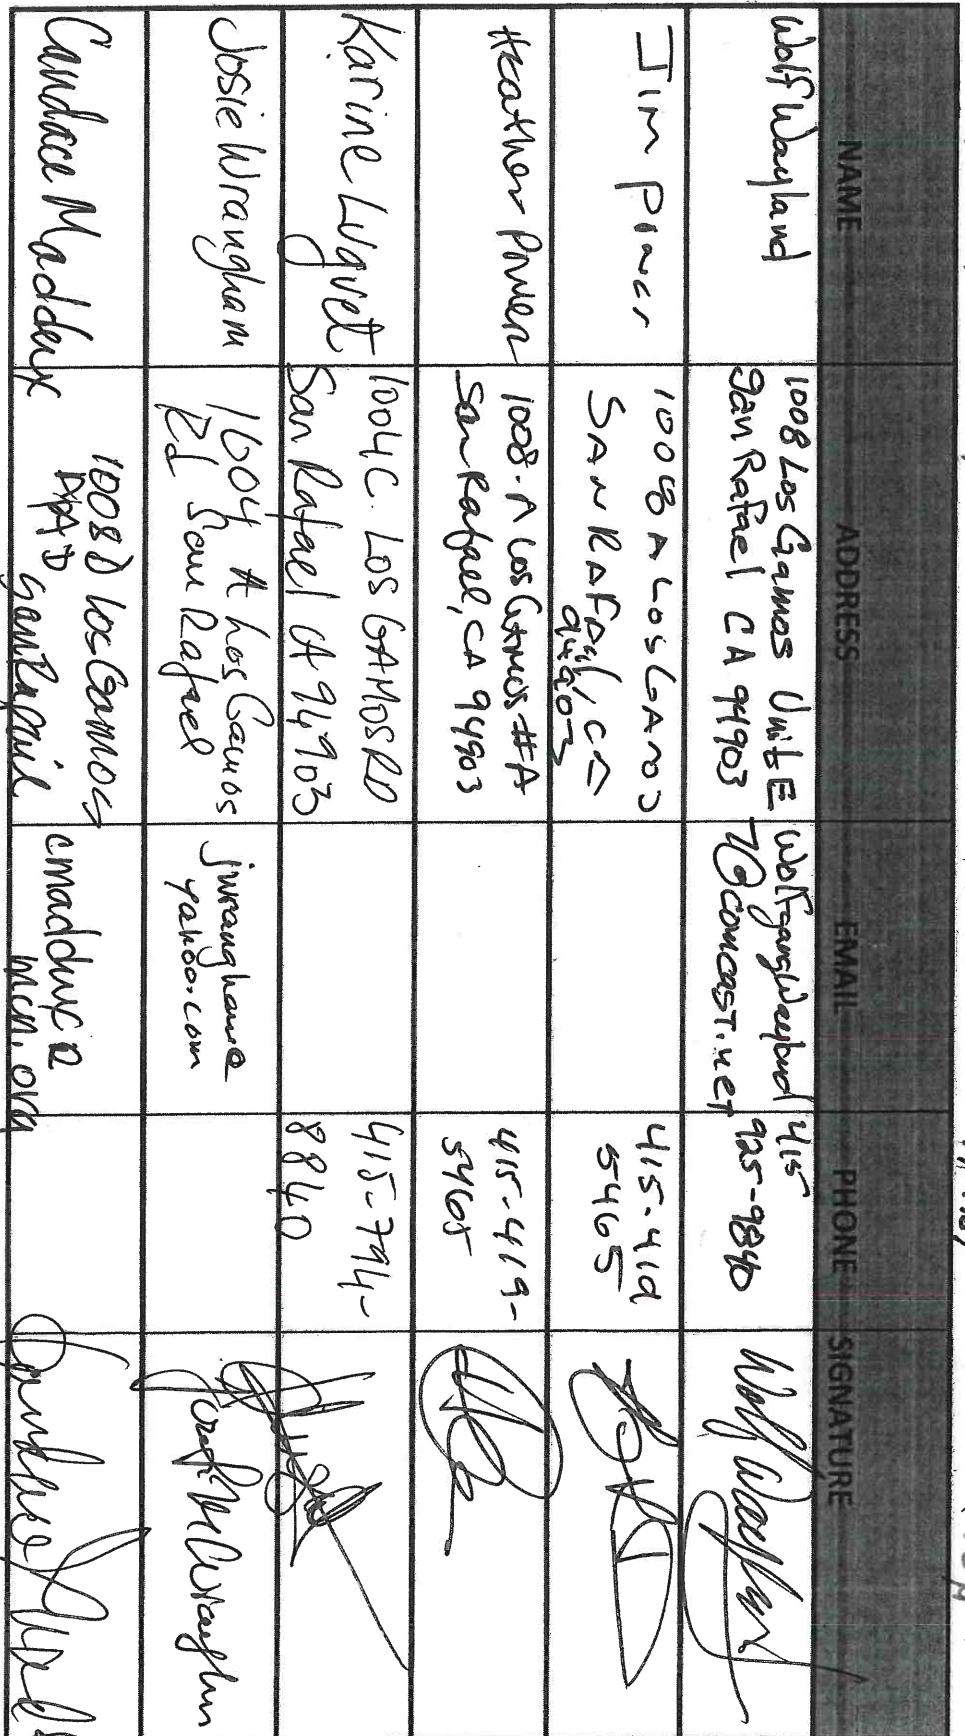 NAME ADDRESS EMAIL PHONE SIGNATURE
Wolf Wayland
1008 Los Gamos Unit E
San Rafael CA 94903
WolfgangWayland
7@comcast.net
415
925-9840
Jim Power
1008 A Los Gamos
SAN RAFAEL, CA
94903
415-419
5465
Heather Power
1008-A Los Gamos #A
San Rafael, CA 94903
415-419-
5465
Karine Luquet
1004C. LOS GAMOS RD
San Rafael CA 94903
415-794-
8840
Josie Wrangham
1604 A Los Gamos
Rd San Rafael
jwrangham@
yahoo.com
Candace Maddux
1008D Los Gamos
San Rafael
cmaddux@
mcn.org